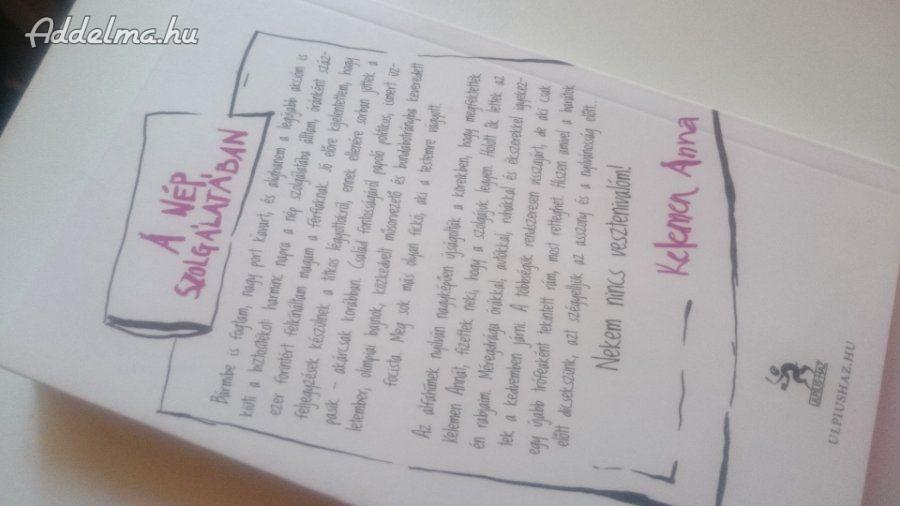 Addelma.hu
A NÉP
SZOLGÁLATÁBAN
Bármibe is fogtam, nagy port kavart, és alighanem a legújabb akcióm is
kiüti a biztosítékot: harminc napra a nép szolgálatába álltam, óránként száz-
ezer forintért felkínáltam magam a férfiaknak. Jó előre kijelentettem, hogy
feljegyzések készülnek a titkos légyottokról, ennek ellenére sorban jöttek a
pasik – akárcsak korábban. Család fontosságáról papoló politikus, ismert üz-
letember, olimpiai bajnok, közkedvelt műsorvezető és bundabotrányba keveredett
focista. Meg sok más olyan fickó, aki a testemre vágyott.
Az alfahímek nyilván nagyképűen újságolták a köreikben, hogy megfektették
Kelemen Annát, fizettek neki, hogy a szolgájuk legyen. Holott ők lettek az
én rabjaim. Méregdrága órákkal, autókkal, ruhákkal és ékszerekkel igyekez-
tek a kedvemben járni. A többségük rendszeresen visszajárt, de aki csak
egy újabb trófeaként tekintett rám, most retteghet. Hiszen amivel a barátok
előtt dicsekszünk, azt szégyelljük az asszony és a nyilvánosság előtt...
Nekem nincs vesztenivalóm!
Kelemen Anna
ULPIUS-HÁZ
ULPIUSHAZ.HU